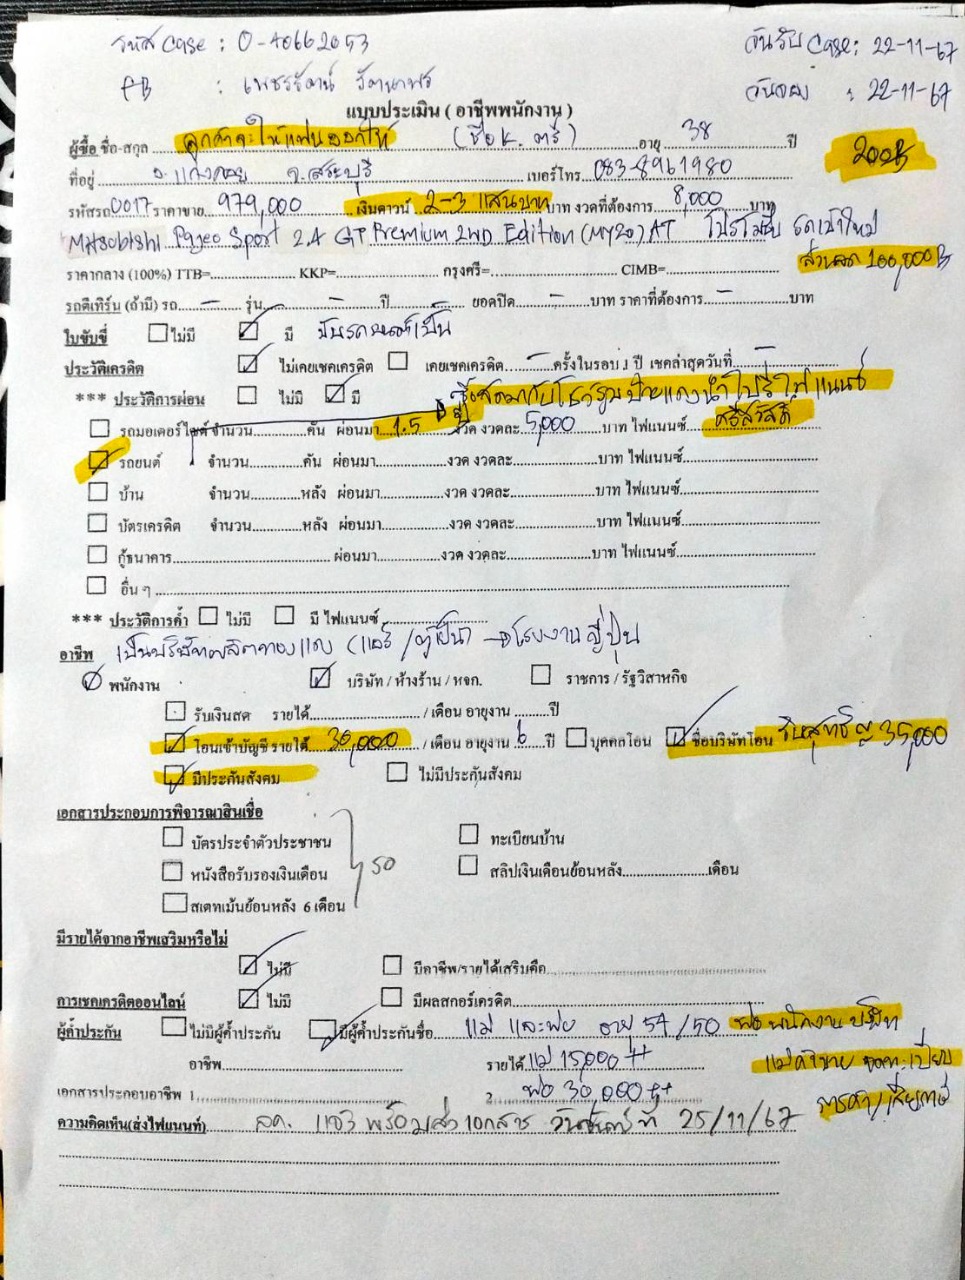 รหัส Case : 0-40662053
วันรับ Case : 22-11-67
FB : เพชรรัตน์ รัตนาพร
วันจอง : 22-11-67
แบบประเมิน ( อาชีพพนักงาน )
ผู้ซื้อ ชื่อ-สกุล ลูกค้าจะให้แฟนออกให้ (ชื่อ K. ตรี) อายุ 38 ปี
200B
ที่อยู่ อ.แก่งคอย จ.สระบุรี เบอร์โทร 083-8961980
รหัสรถ 0017 ราคาขาย 979,000 เงินดาวน์ 2-3 แสนบาท บาท งวดที่ต้องการ 8,000 บาท
Mitsubishi Pajero Sport 2.4 GT Premium 2WD Edition (MY20) AT โปรโมชั่น รถเข้าใหม่
ส่วนลด 100,000B
ราคากลาง (100%) TTB= KKP= กรุงศรี= CIMB=
รถตีเทิร์น (ถ้ามี) รถ - รุ่น - ปี ยอดปิด - บาท ราคาที่ต้องการ - บาท
ใบขับขี่ ไม่มี มี ขับรถยนต์เป็น
ประวัติเครดิต ไม่เคยเชคเครดิต เคยเชคเครดิต - ครั้งในรอบ 1 ปี เชคล่าสุดวันที่ -
*** ประวัติการผ่อน ไม่มี มี
รถมอเตอร์ไซค์ จำนวน คัน ผ่อนมา 1.5 งวด งวดละ 5,000 บาท ไฟแนนซ์ ศรีสวัสดิ์
รถยนต์ จำนวน คัน ผ่อนมา งวด งวดละ บาท ไฟแนนซ์
บ้าน จำนวน หลัง ผ่อนมา งวด งวดละ บาท ไฟแนนซ์
บัตรเครดิต จำนวน หลัง ผ่อนมา งวด งวดละ บาท ไฟแนนซ์
กู้ธนาคาร ผ่อนมา งวด งวดละ บาท ไฟแนนซ์
อื่น ๆ
*** ประวัติการค้ำ ไม่มี มี ไฟแนนซ์
อาชีพ เป็นบริษัทผลิตทองแดง (แอร์ / ตู้เย็น) → โรงงานญี่ปุ่น
พนักงาน บริษัท / ห้างร้าน / หจก. ราชการ / รัฐวิสาหกิจ
รับเงินสด รายได้ / เดือน อายุงาน ปี
โอนเข้าบัญชี รายได้ 30,000 / เดือน อายุงาน 6 ปี บุคคลโอน ชื่อบริษัทโอน 35,000
มีประกันสังคม ไม่มีประกันสังคม
เอกสารประกอบการพิจารณาสินเชื่อ
บัตรประจำตัวประชาชน ทะเบียนบ้าน
หนังสือรับรองเงินเดือน สลิปเงินเดือนย้อนหลัง เดือน
สเตทเม้นย้อนหลัง 6 เดือน
มีรายได้จากอาชีพเสริมหรือไม่
ไม่มี มีอาชีพ/รายได้เสริมคือ
การเชคเครดิตออนไลน์ ไม่มี มีผลสกอร์เครดิต
ผู้ค้ำประกัน ไม่มีผู้ค้ำประกัน มีผู้ค้ำประกันชื่อ แม่ และพ่อ อายุ 54/50 พ่อ พนักงานบริษัท
อาชีพ รายได้ แม่ 15,000 ++
เอกสารประกอบอาชีพ 1 2 พ่อ 30,000 ++
ความคิดเห็น(ส่งไฟแนนท์) ลค. แจ้งพร้อมส่งเอกสาร วันจันทร์ที่ 25/11/67